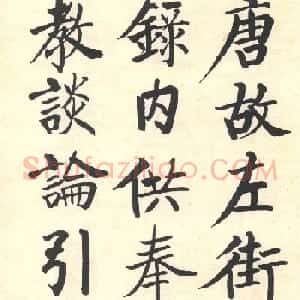 唐故左街
錄内供奉
教談論引
ShufaZidao.COM